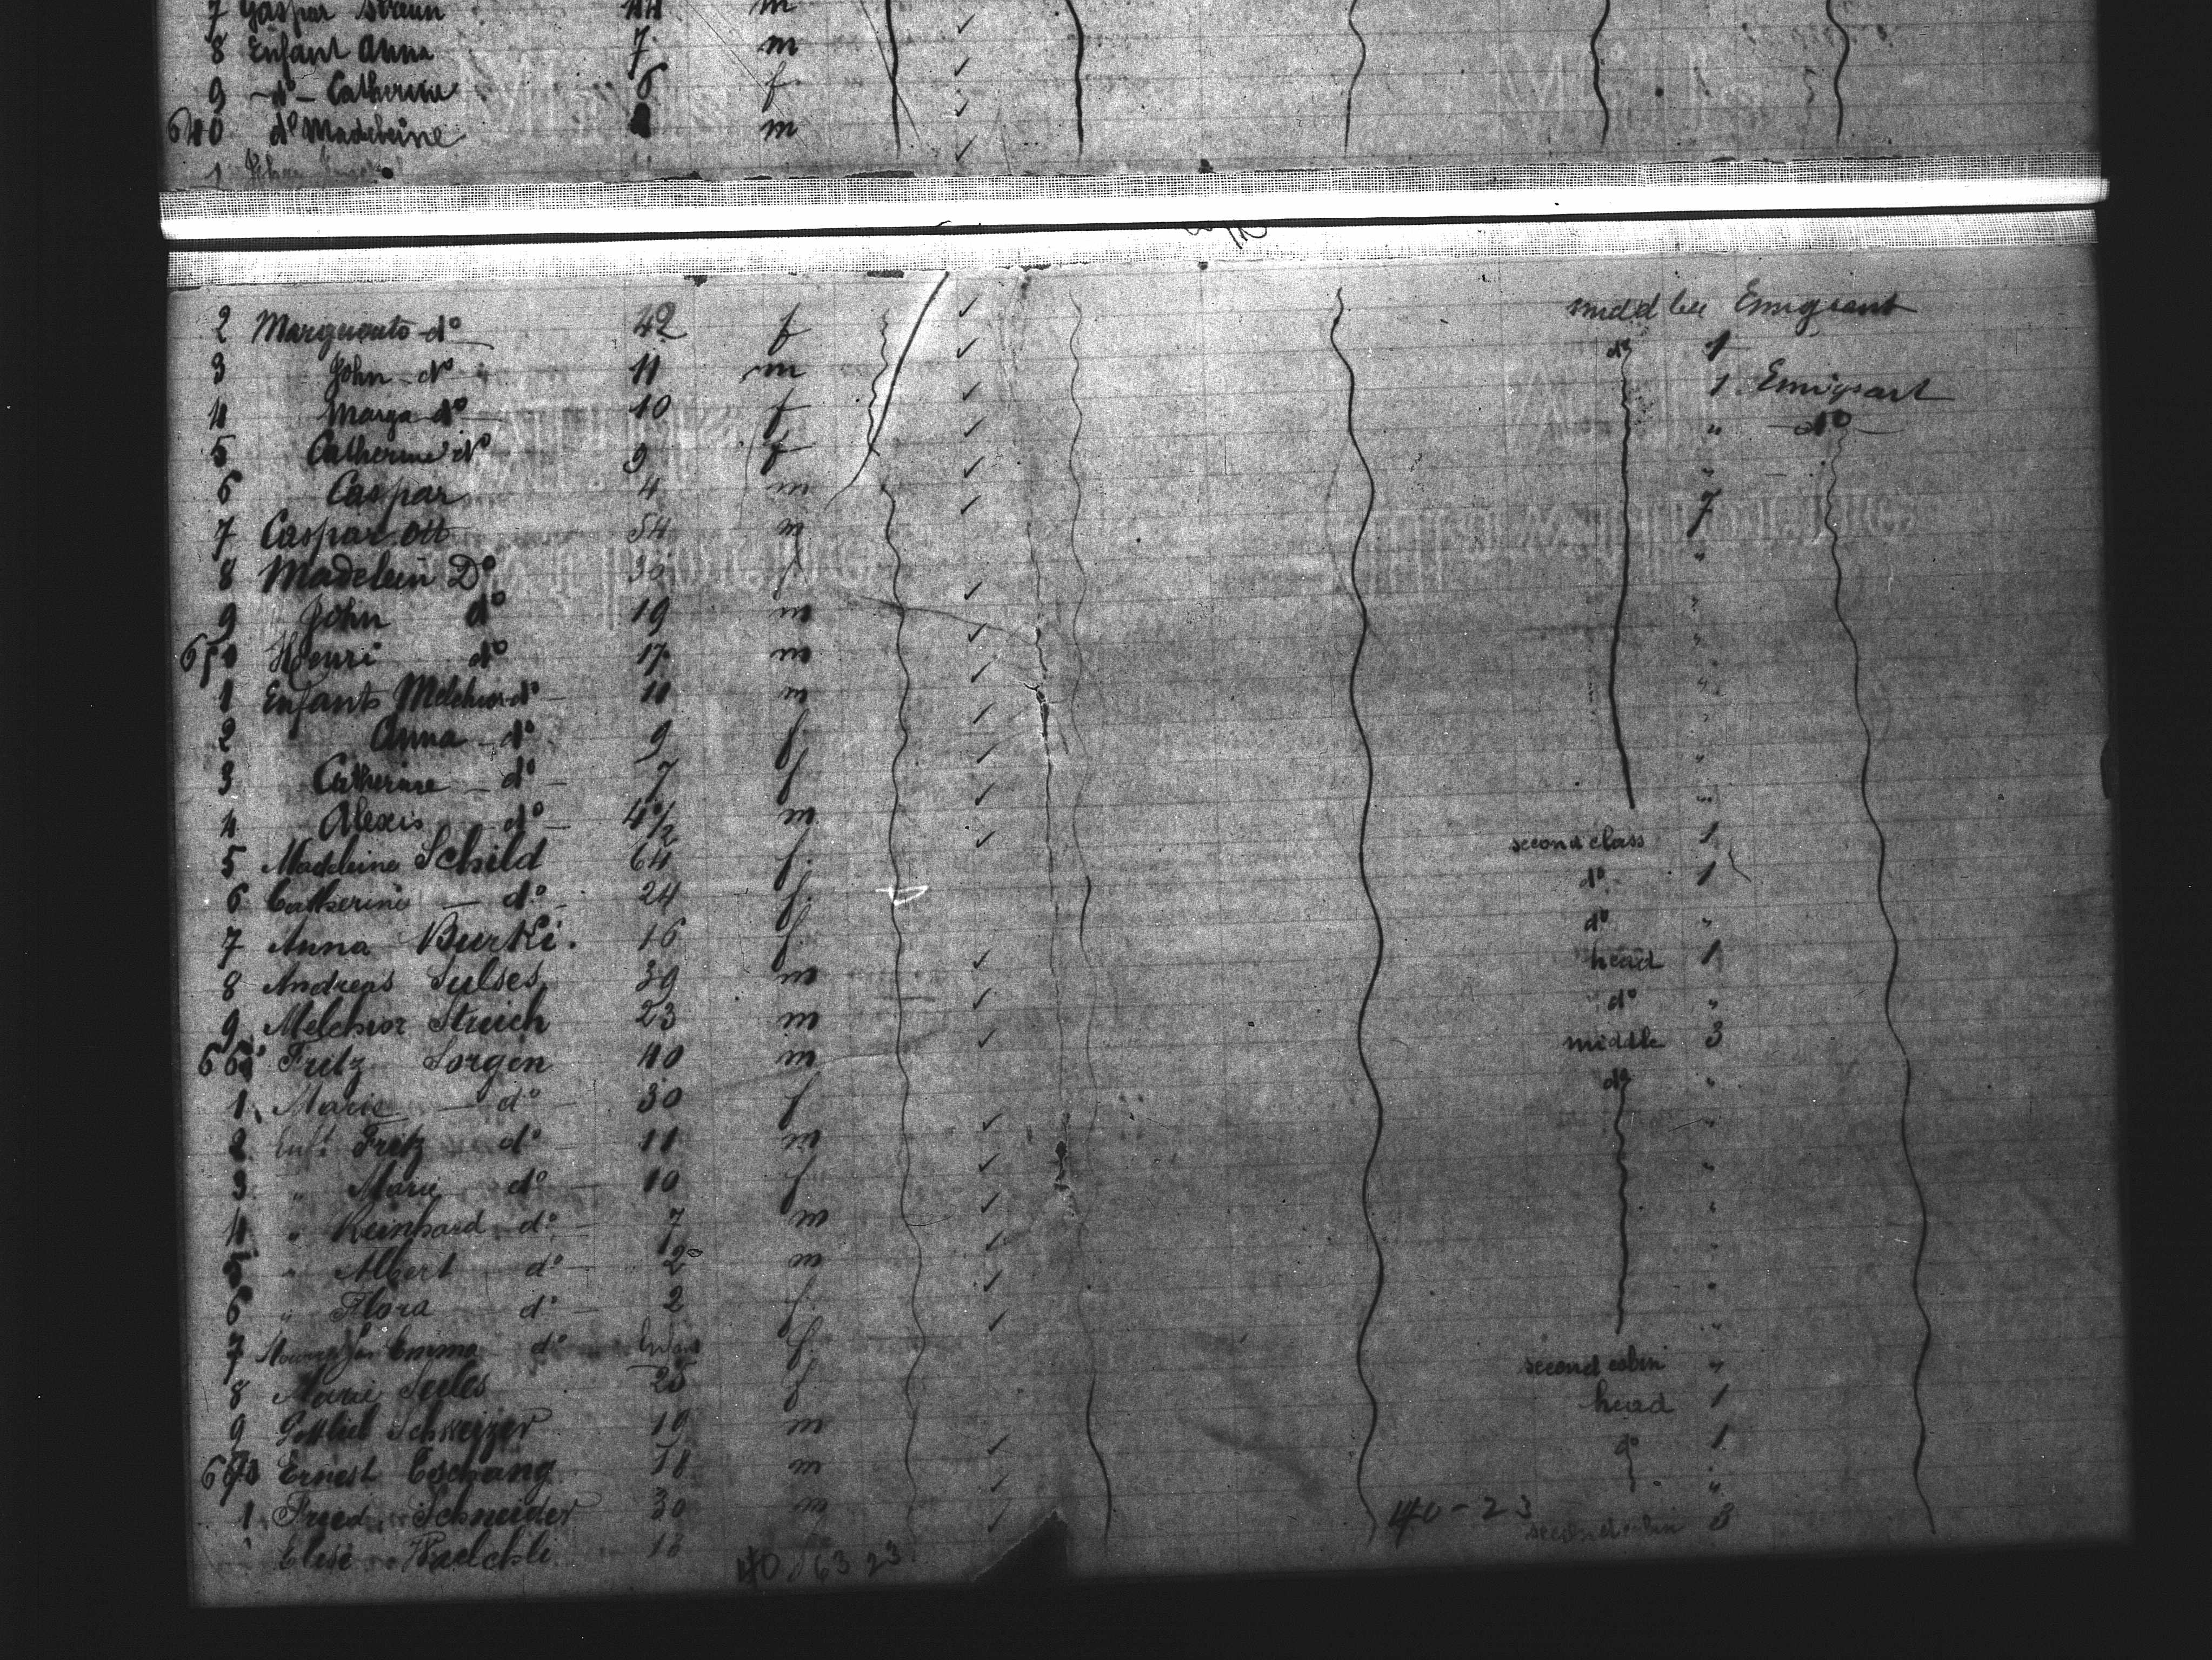 7 Gaspar 44 m
8 Enfant Anna 7 m
9 -do- Catherine 6 f
640 do Madeleine m
1
2 do 42 f middle Emigrant
3 John do 11 m do 1
4 Marga do 10 f 1 Emigrant
5 Catherine do 9 f " do
6 Caspar 4 m "
7 Caspar Ott 54 m 7
8 Madelein Do f "
9 John do 19 m "
650 Henri do 17 m "
1 Enfants Melchior do 11 m "
2 Anna do 9 f. "
3 Catherine do 7 f "
4 Alexis do 4 1/2 m "
5 Madeleine Schild 64 f. second class 1
6 Catherine do 24 f. do 1
7 Anna Burki. 16 f. do "
8 Andreas Sulses 39 m head 1
9 Melchior Struch 23 m do "
660 Fritz Sorgen 40 m middle 3
1 Marie do 30 f do "
2 Enft Fritz do 11 m "
3 " Marie do 10 f "
4 " Reinhard do 7 m "
5 " Albert do 2 m "
6 " Flora do 2 f. "
7 Emma do f. "
8 Marie 25 f. second cabin "
9 Gottlieb Schweizer 19 m head 1
670 Ernest Eschang 18 m do 1
1 Fried. Schneider 30 m "
Elise 18 second cabin 3
40-23
40 63 23